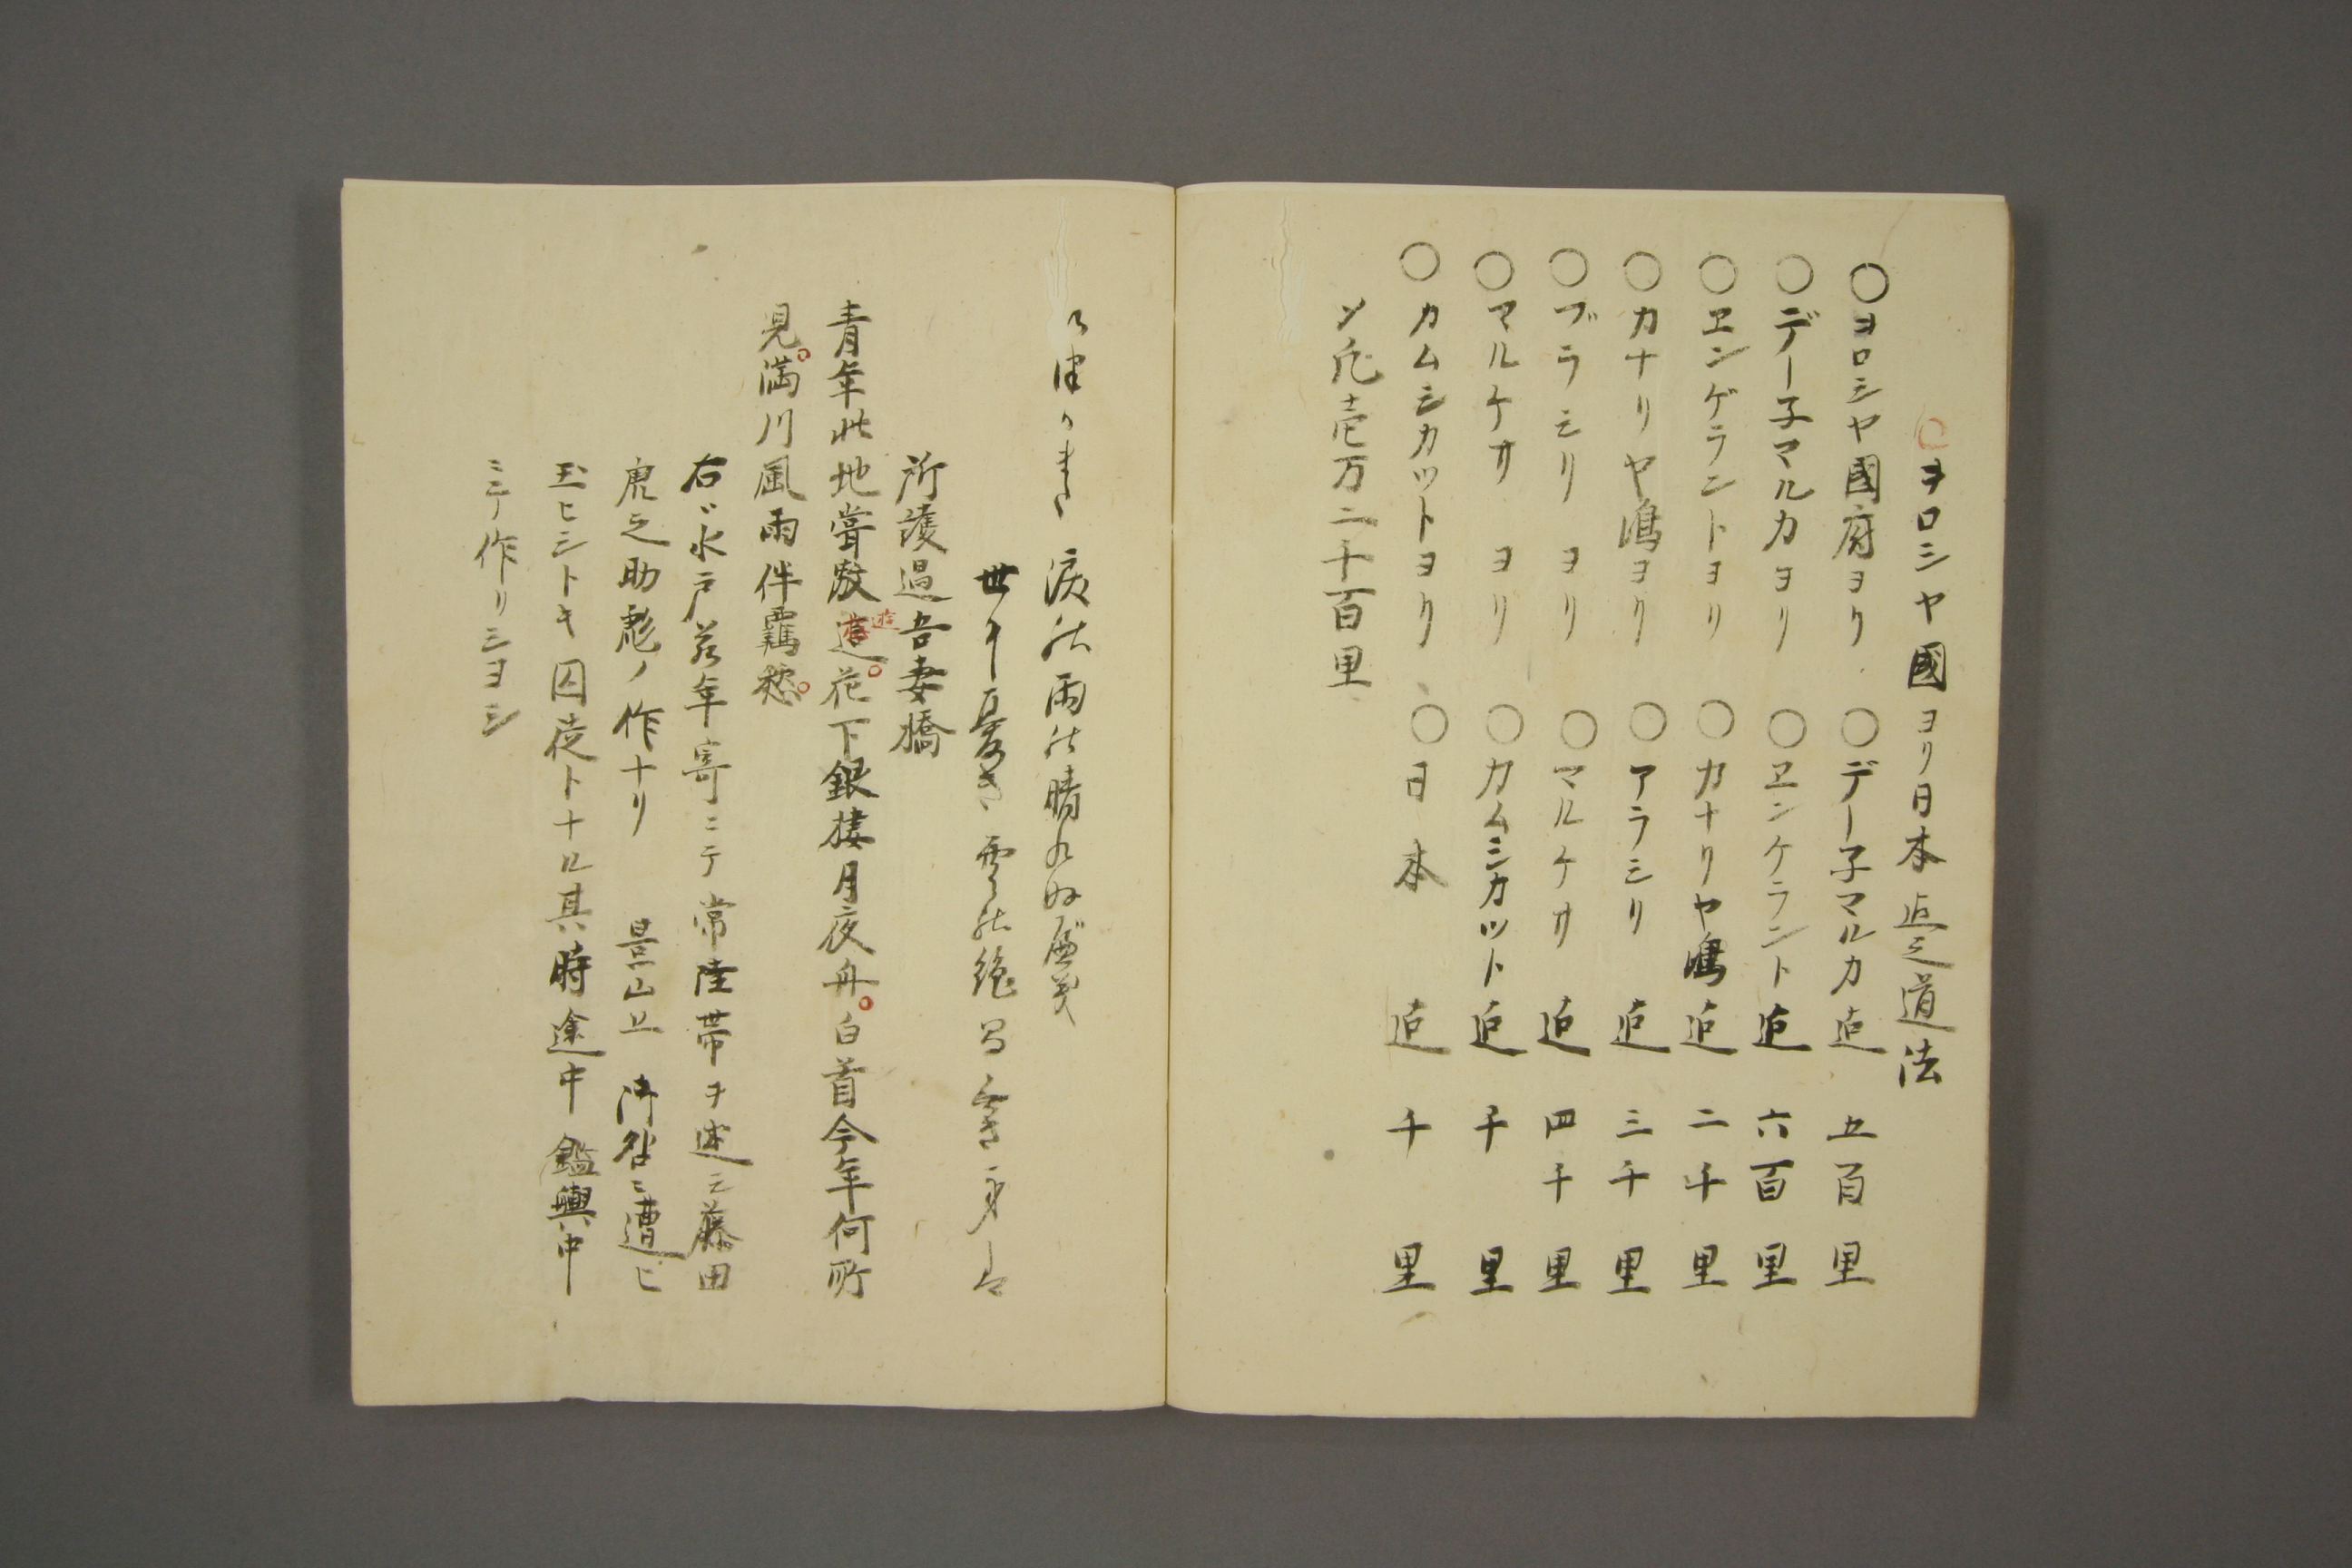 ○ヲロシヤ國ヨリ日本迄之道法
○ヲロシヤ國府ヨリ ○デー子マルカ迄 五百里
○デー子マルカヨリ ○ヱンケラント迄 六百里
○ヱンゲラントヨリ ○カナリヤ嶋迄 二千里
○カナリヤ嶋ヨリ ○アラシリ迄 三千里
○ブラシリヨリ ○マルケサ迄 四千里
○マルケサヨリ ○カムシカツト迄 千里
○カムシカツトヨリ ○日本迄 千里
〆凡壱万二千百里
涙の雨の晴れぬ
世に
所護過吾妻橋
青年此地嘗敖遊花下銀楼月夜舟白首今年何所
見満川風雨伴羈愁
右ハ水戸若年寄ニテ常陸帯ヲ述シ藤田
虎之助彪ノ作ナリ 景山公 御咎ニ遭ヒ
玉ヒシトキ囚徒トナル其時途中鑑輿中
ニテ作リシヨシ